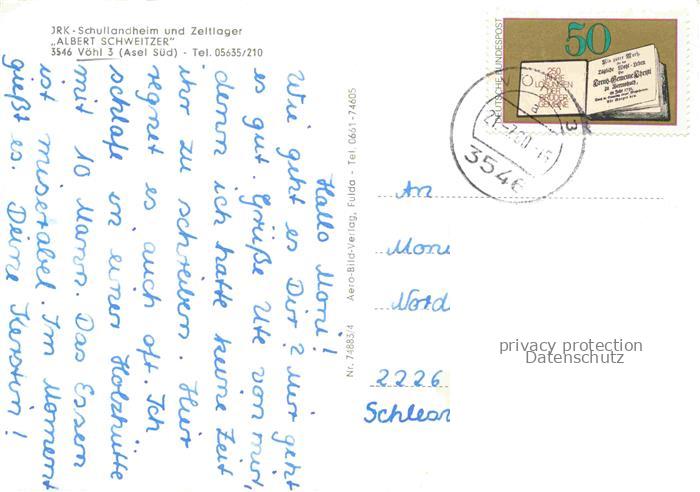 JRK - Schullandheim und Zeltlager
„ALBERT SCHWEITZER"
3546 Vöhl 3 (Asel Süd) - Tel. 05635/210
Hallo Moni!
Wie geht es Dir? Mir geht
es gut. Grüße Ute von mir,
denn ich hatte keine Zeit
ihr zu schreiben. Hier
regnet es auch oft. Ich
schlafe in einer Holzhütte
mit 10 Mann. Das Essen
ist miserabel. Im Moment
gießt es. Deine Kerstin!
Nr. 74883/4 Aero-Bild-Verlag, Fulda - Tel. 0661-74605
DEUTSCHE BUNDESPOST
50
250
JAHRE
LOSUNGEN
DER
BRÜDER-
GEMEINE
3546
An
Moni
Nord
2226
privacy protection
Datenschutz